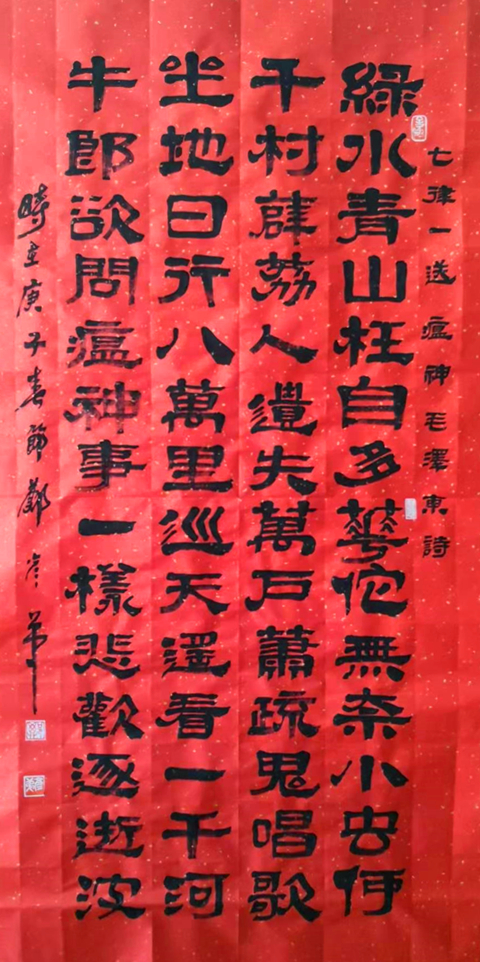 七律一送瘟神毛澤東詩
綠水青山枉自多華佗無奈小虫何
千村薜荔人遺失萬戶蕭疏鬼唱歌
坐地日行八萬里巡天遥看一千河
牛郎欲問瘟神事一樣悲歡逐逝波
時在庚子春節鄭